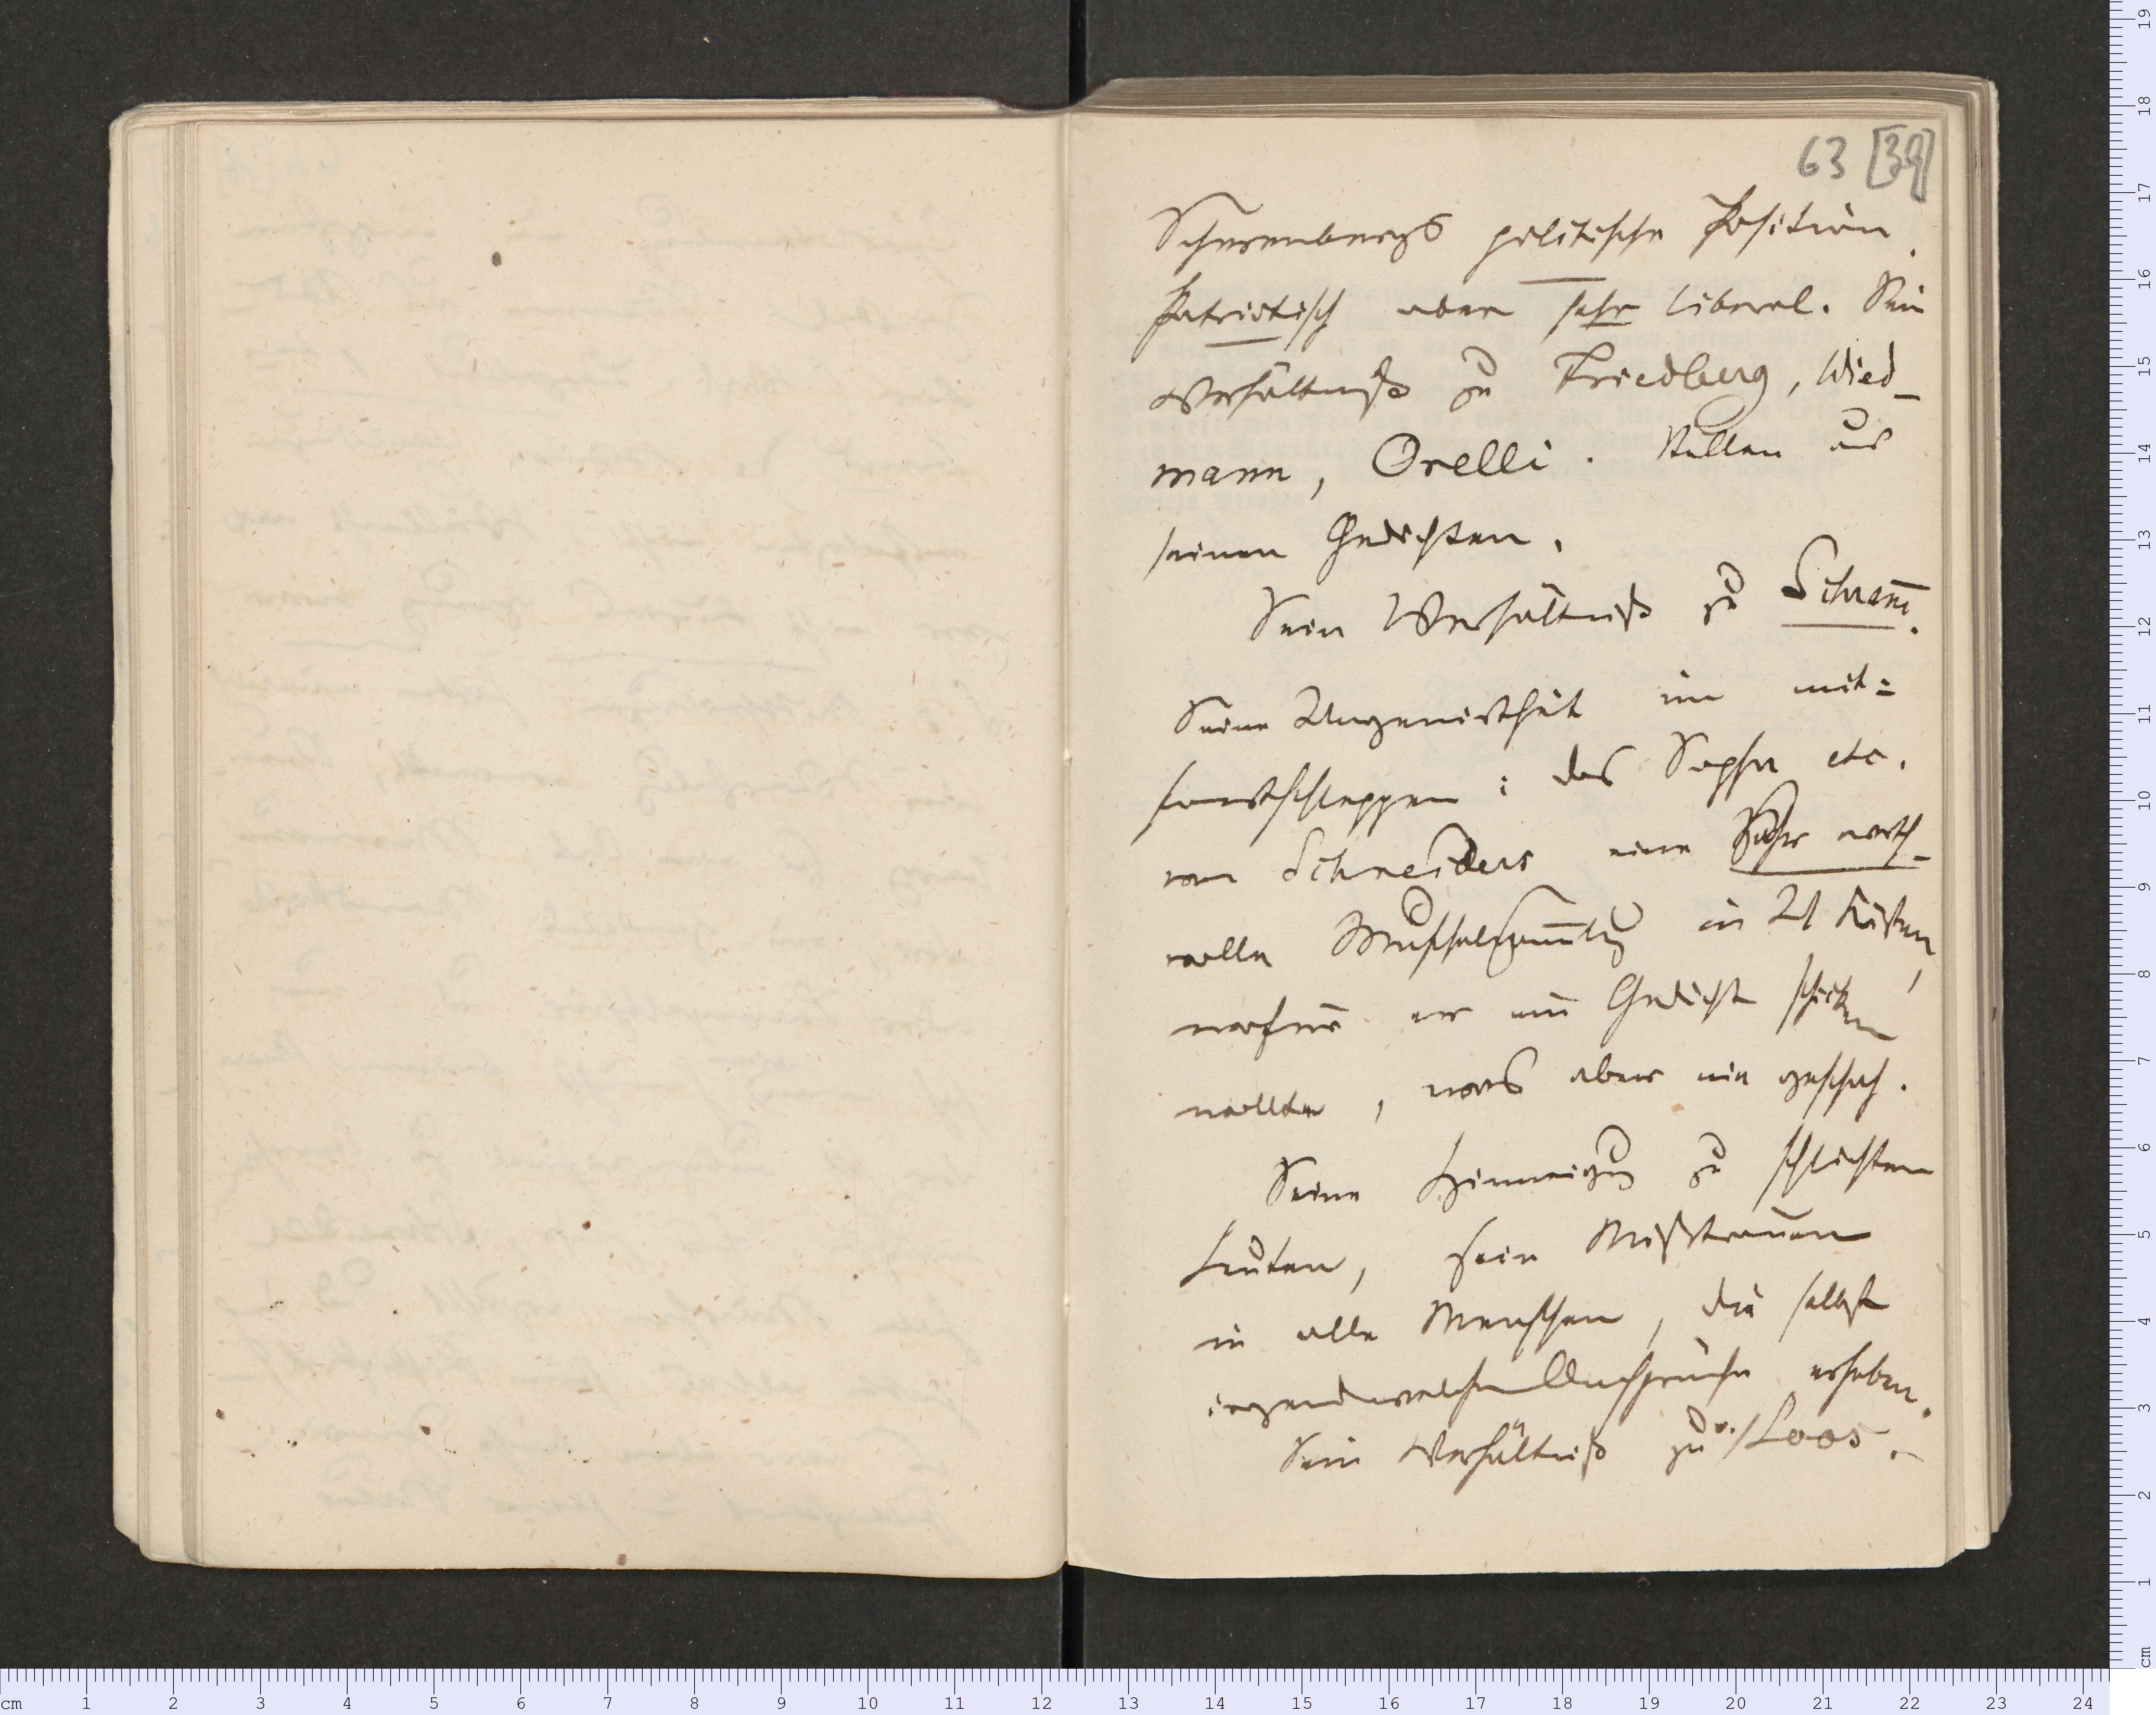 63 [39]
Scherenbergs politische Position.
Patriotisch aber sehr liberal. Sein
Verhältniß zu Friedberg, Wied-
mann, Orelli. Stellen aus
seinen Gedichten.
Sein Verhältniß zu Schram̄.
Seine Ungenirtheit im mit=
fortschleppen: das Sopha etc.
von Schneiders eine sehr werth-
volle Muschelsam̄lung in 21 Kästen,
wofür er ein Gedicht schicken
wollte, was aber nie geschah.
Seine Hinneigung zu schlichten
Leuten, sein Mißtrauen
in alle Menschen, die selbst
irgendwelche Ansprüche erheben.
Sein Verhältniß zu v. Loos.
cm 1 2 3 4 5 6 7 8 9 10 11 12 13 14 15 16 17 18 19 20 21 22 23 24
cm 1 2 3 4 5 6 7 8 9 10 11 12 13 14 15 16 17 18 19